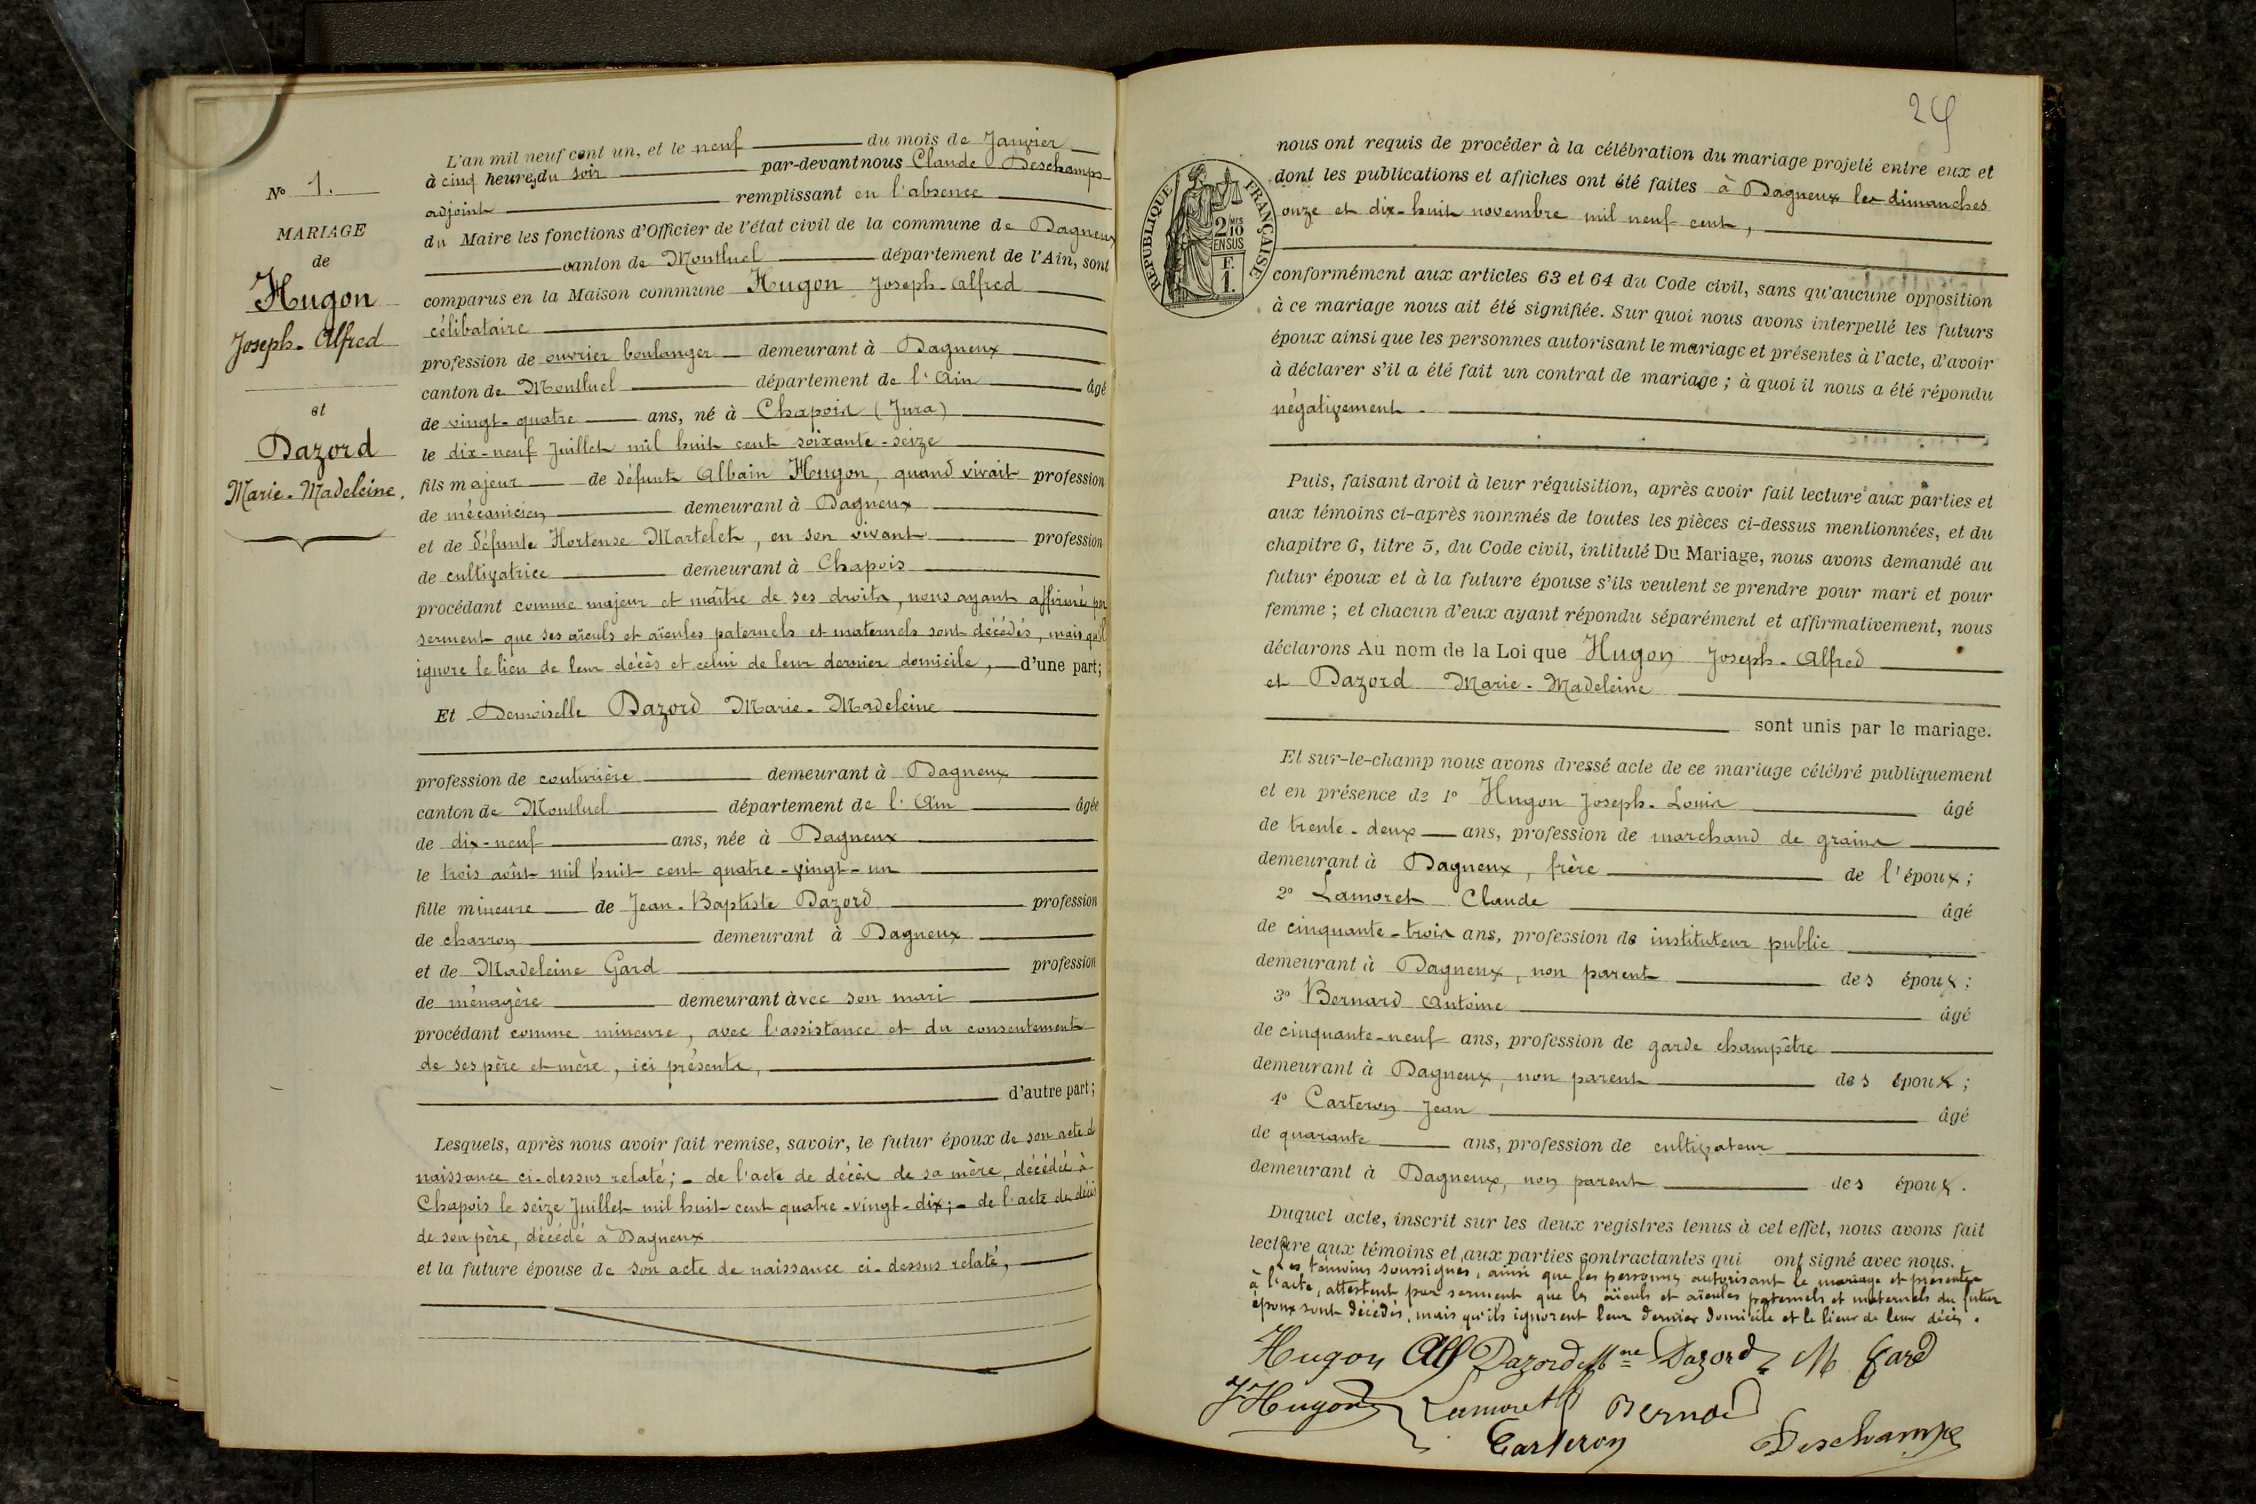 L'an mil neuf cent un, et le neuf du mois de Janvier
à cinq heures du soir par-devant nous Claude Deschamps
adjoint remplissant en l'absence
du Maire les fonctions d'Officier de l'état civil de la commune de Dagneux
canton de Montluel département de l'Ain, sont
comparus en la Maison commune Hugon Joseph-Alfred
célibataire
profession de ouvrier boulanger demeurant à Dagneux
canton de Montluel département de l'Ain âgé
de vingt-quatre ans, né à Chapois (Jura)
le dix-neuf Juillet mil huit cent soixante-seize
fils majeur de défunt Albain Hugon, quand vivait profession
de mécanicien demeurant à Dagneux
et de défunte Hortense Martelet, en son vivant profession
de cultivatrice demeurant à Chapois
procédant comme majeur et maître de ses droits, nous ayant affirmé par
serment que ses aïeuls et aïeules paternels et maternels sont décédés, mais qu'il
ignore le lieu de leur décès et celui de leur dernier domicile, d'une part;
Et Demoiselle Dazord Marie-Madeleine
profession de couturière demeurant à Dagneux
canton de Montluel département de l'Ain âgée
de dix-neuf ans, née à Dagneux
le trois août mil huit cent quatre-vingt-un
fille mineure de Jean-Baptiste Dazord profession
de charron demeurant à Dagneux
et de Madeleine Gard profession
de ménagère demeurant avec son mari
procédant comme mineure, avec l'assistance et du consentement
de ses père et mère, ici présents,
d'autre part;
Lesquels, après nous avoir fait remise, savoir, le futur époux de son acte d
naissance ci-dessus relaté; - de l'acte de décès de sa mère, décédée à
Chapois le seize Juillet mil huit cent quatre-vingt-dix; - de l'acte de décès
de son père, décédé à Dagneux
et la future épouse de son acte de naissance ci-dessus relaté,
No 1.
MARIAGE
de
Hugon
Joseph-Alfred
et
Dazord
Marie-Madeleine.
29
RÉPUBLIQUE FRANÇAISE
2 MES
10
EN SUS
F.
1.
nous ont requis de procéder à la célébration du mariage projeté entre eux et
dont les publications et affiches ont été faites à Dagneux les dimanches
onze et dix-huit novembre mil neuf cent,
conformément aux articles 63 et 64 du Code civil, sans qu'aucune opposition
à ce mariage nous ait été signifiée. Sur quoi nous avons interpellé les futurs
époux ainsi que les personnes autorisant le mariage et présentes à l'acte, d'avoir
à déclarer s'il a été fait un contrat de mariage; à quoi il nous a été répondu
négativement.
Puis, faisant droit à leur réquisition, après avoir fait lecture aux parties et
aux témoins ci-après nommés de toutes les pièces ci-dessus mentionnées, et du
chapitre 6, titre 5, du Code civil, intitulé Du Mariage, nous avons demandé au
futur époux et à la future épouse s'ils veulent se prendre pour mari et pour
femme; et chacun d'eux ayant répondu séparément et affirmativement, nous
déclarons Au nom de la Loi que Hugon Joseph-Alfred
et Dazord Marie-Madeleine
sont unis par le mariage.
Et sur-le-champ nous avons dressé acte de ce mariage célébré publiquement
et en présence de 1o Hugon Joseph-Louis âgé
de trente-deux ans, profession de marchand de grains
demeurant à Dagneux, frère de l'époux;
2o Lamoret Claude âgé
de cinquante-trois ans, profession de instituteur public
demeurant à Dagneux, non parent des époux;
3o Bernard Antoine âgé
de cinquante-neuf ans, profession de garde champêtre
demeurant à Dagneux, non parent des époux;
4o Carteron Jean âgé
de quarante ans, profession de cultivateur
demeurant à Dagneux, non parent des époux.
Duquel acte, inscrit sur les deux registres tenus à cet effet, nous avons fait
lecture aux témoins et aux parties contractantes qui ont signé avec nous.
Les témoins soussignés, ainsi que les personnes autorisant le mariage et présentes
à l'acte, attestent par serment que les aïeuls et aïeules paternels et maternels du futur
époux sont décédés, mais qu'ils ignorent leur dernier domicile et le lieu de leur décès.
Hugon Alf Dazord Mne Dazord M Gard
J Hugon Lamoret Bernard
Carteron Deschamps